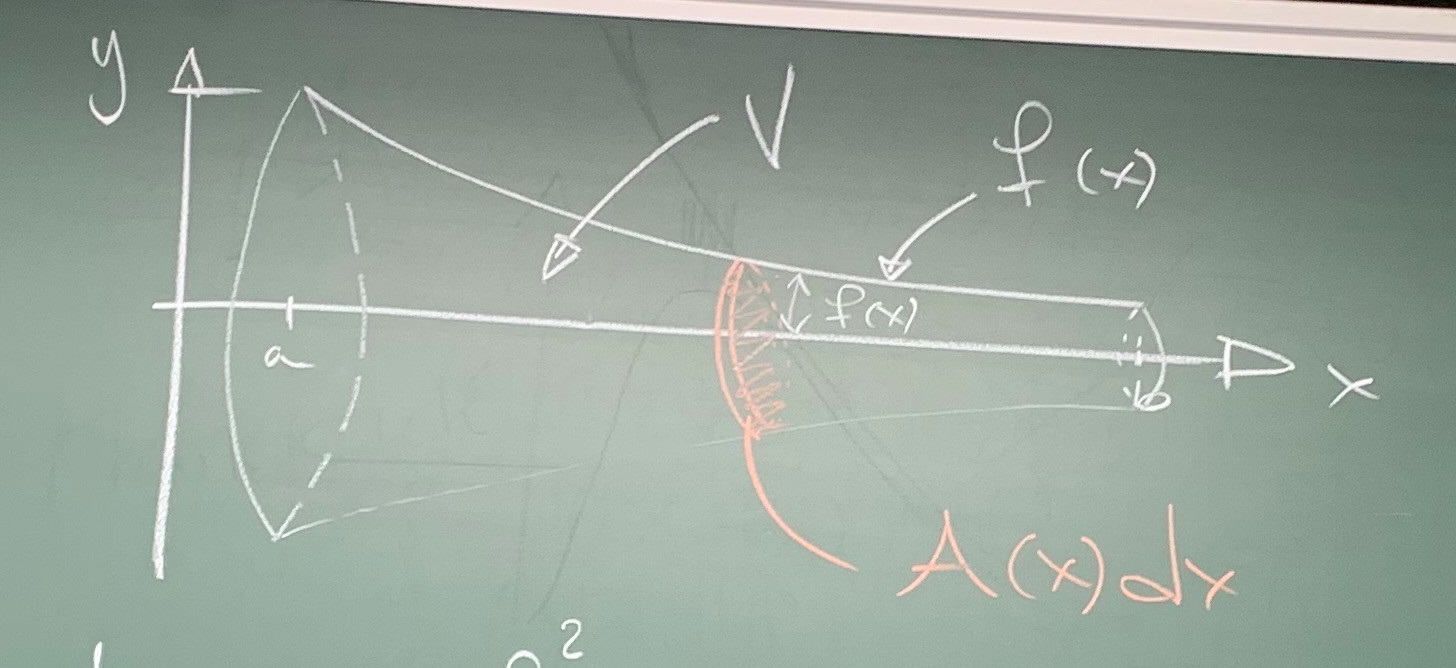 y
V
f(x)
f(x)
a
b
x
A(x)dx
2